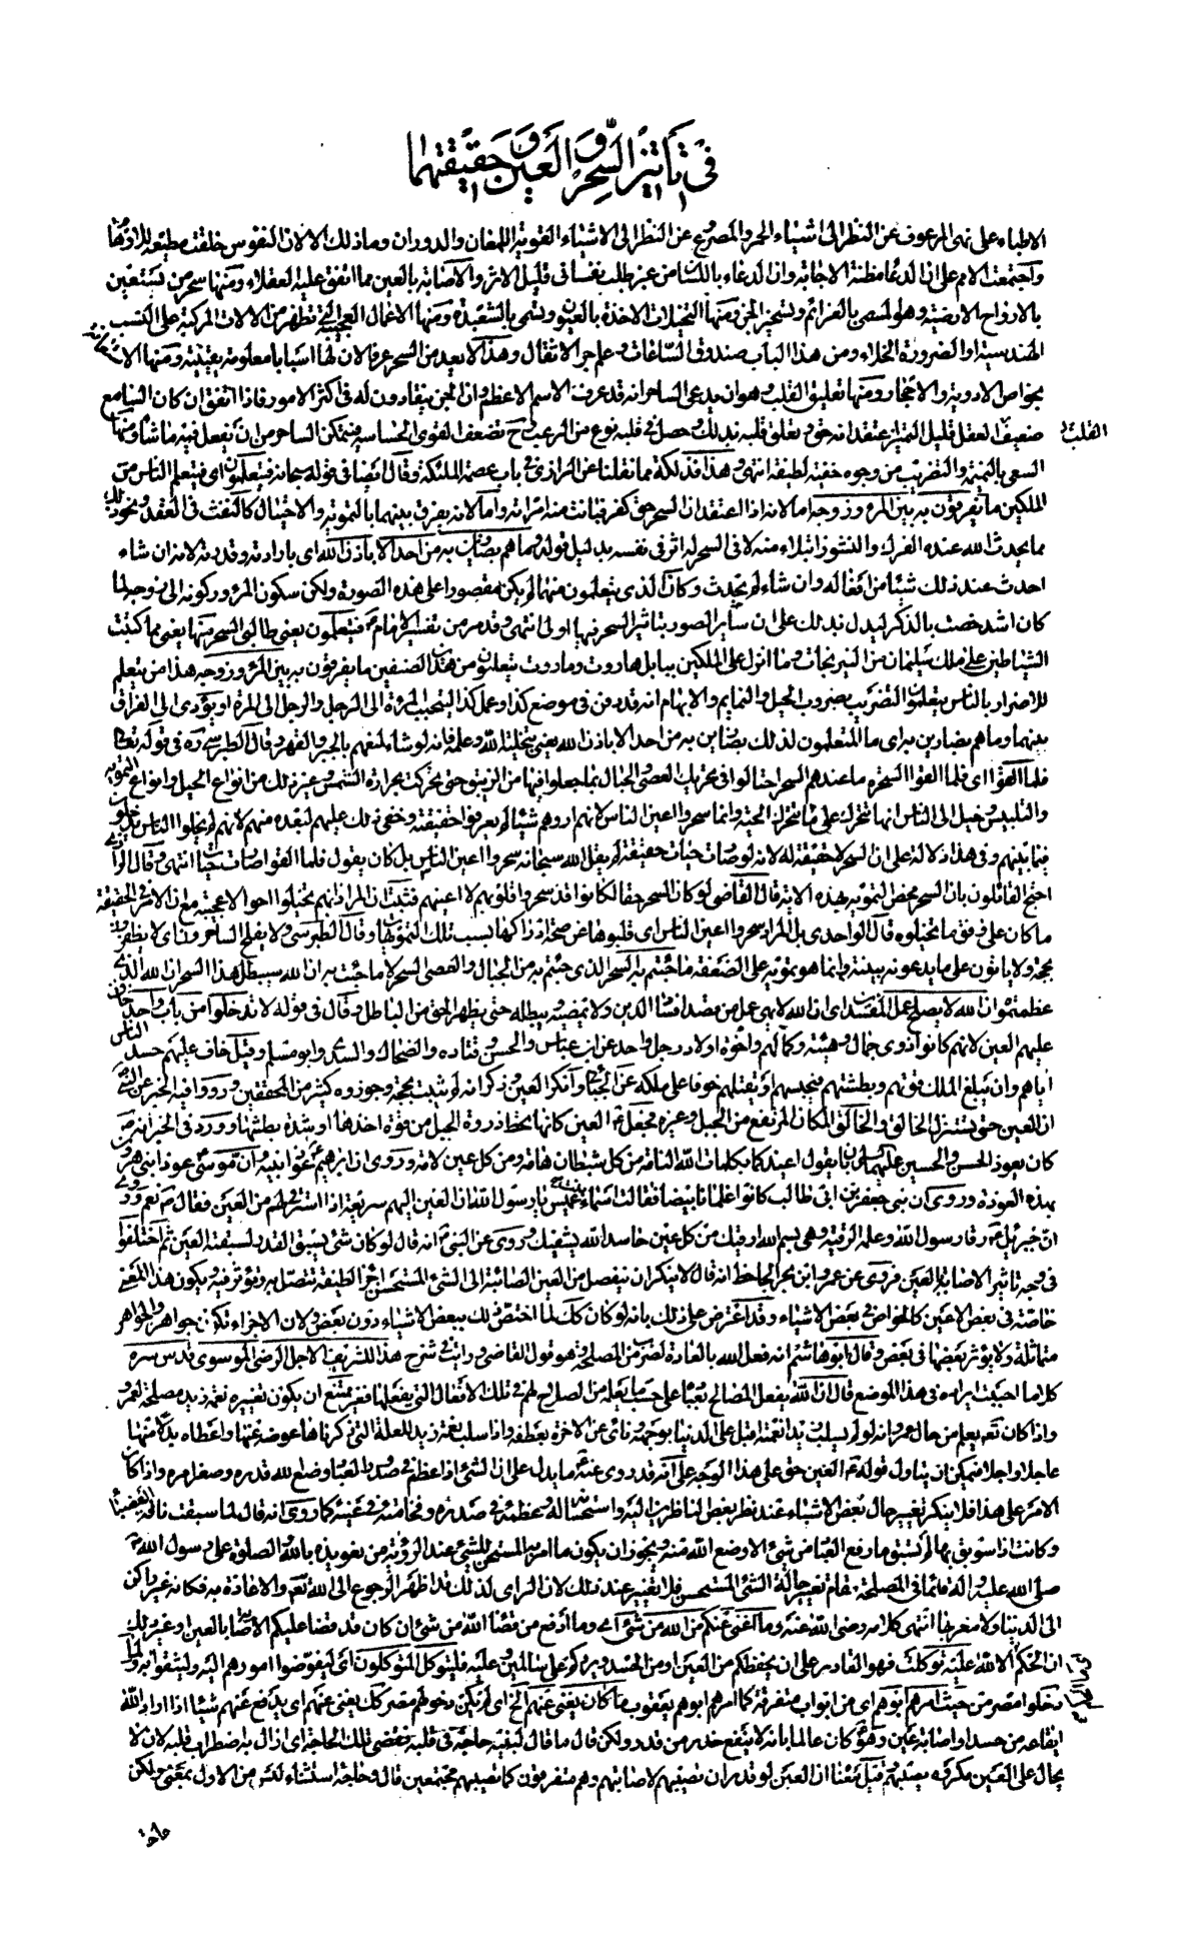 في تأثير السحر والعين وحقيقتهما
الاطباء على نهى المرعوف عن النظر الى الاشياء الحمر والمصروع عن النظر الى الاشياء القوية اللمعان والدوران وما ذلك الا لان النفوس خلقت مطيعة للاوهام
واجتمعت الامم على ان الدعا مظنة الاجابة وان الدعاء باللسان من غير طلب نفساني قليل الاثر والاصابة بالعين مما اتفق عليه العقلاء ومنها سحر من يستعين
بالارواح الارضية وهو المسمى بالعزائم وتسخير الجن ومنها التخيلات الاخذة بالعيون وتسمى بالشعبذة ومنها الاعمال العجيبة التي تظهر من الالات المركبة على النسب
الهندسية او الضرورة الخلاء ومن هذا الباب صندوق الساعات وعلم جر الاثقال وهذا لا يعد من السحر عرفا لان لها اسبابا معلومة يقينية ومنها الاستعانة
بخواص الادوية والاحجار ومنها تعليق القلب وهو ان يدعى الساحر انه قد عرف الاسم الاعظم وان الجن ينقادون له في اكثر الامور فاذا اتفق ان كان السامع
ضعيف العقل قليل التميز اعتقد انه حق وتعلق قلبه بذلك وحصل في قلبه نوع من الرعب وح تضعف القوى الحساسة فيتمكن الساحر من ان يفعل فيه ما شاء ومنها
القلب
السعى بالنميمة والتضريب من وجوه خفية لطيفة انتهى وهذا فذلكة مما نقلنا عن الرازي في باب عصمة الملئكة وقال ايضا في قوله سبحانه فيتعلمون اى فيتعلم الناس من
الملكين ما يفرقون به بين المرء وزوجه اما لانه اذا اعتقد ان السحر حق كفر فبانت منه امراته واما لانه يفرق بينهما بالتمويه والاحتيال كالنفث في العقد ونحو ذلك
مما يحدث الله عنده الفرك والنشوز ابتلاء منه لا ان السحر له اثر في نفسه بدليل قوله وما هم بضارين به من احد الا باذن الله اى بارادته وقدرته لانه ان شاء
احدث عند ذلك شيئا من افعاله وان شاء لم يحدث وكان الذى يتعلمون منهما لم يكن مقصورا على هذه الصورة ولكن سكون المرء وركونه الى زوجه لما
كان اشد خصت بالذكر ليدل بذلك على ان ساير الصور بتاثير السحر فيها اولى انتهى وقد مر من تفسير الامام ع فيتعلمون يعنى طالبى السحر منهما يعنى مما كتبت
الشياطين على ملك سليمان من النيرنجات وما انزل على الملكين ببابل هاروت وماروت يتعلمون من هذين الصنفين ما يفرقون به بين المرء وزوجه هذا من يتعلم
للاضرار بالناس يتعلمون التضريب بضروب الحيل والنمايم والايهام انه قد دفن في موضع كذا وعمل كذا ليتحبب المرئة الى الرجل والرجل الى المرئة او يؤدى الى الفراق
بينهما وما هم بضارين به اى ما المتعلمون لذلك بضارين به من احد الا باذن الله يعنى بتخلية الله وعلمه فانه لو شاء لمنعهم بالجبر والقهر وقال الطبرسى ره في قوله تعالى
فلما القوا اى فلما القوا السحرة ما عندهم السحر احتالوا في تحريك العصى والحبال بما جعلوا فيها من الزيبق حتى تحركت بحرارة الشمس وغير ذلك من انواع الحيل وانواع التمويه
والتلبيس وخيل الى الناس انها تتحرك على ما تتحرك الحية وانما سحروا اعين الناس لانهم اروهم شيئا لم يعرفوا حقيقته وخفى ذلك عليهم لبعده منهم لانهم لم يخلوا الناس يدخلون
فيما بينهم وفي هذا دلالة على ان السحر لا حقيقة له لانه لو صارت حيات حقيقة لم يقل الله سبحانه سحروا اعين الناس بل كان يقول فلما القوا صارت حيات انتهى وقال الرازي
احتج القائلون بان السحر محض التمويه بهذه الاية قال القاضى لو كان السحر حقا لكانوا قد سحروا قلوبهم لا اعينهم فثبت ان المراد انهم تخيلوا احوالا عجيبة مع ان الامر في الحقيقة
ما كان على وفق ما تخيلوه قال الواحدى بل المراد سحروا اعين الناس اى قلبوها عن صحة ادراكها بسبب تلك التمويهات وقال الطبرسى ولا يفلح الساحرون اى لا يظفرون
بحجة ولا ياتون على ما يدعونه ببينة وانما هو تمويه على الضعفة ما جئتم به السحر الذى جئتم به من الحبال والعصى السحر لا ما جئت به ان الله سيبطل هذا السحر ان الله
عظمتموه ان الله لا يصلح عمل المفسدين اى ان الله لا يهيئ عمل من قصد افساد الدين ولا يمضيه ويبطله حتى يظهر الحق من الباطل وقال في قوله لا تدخلوا من باب واحد خاف
عليهم العين لانهم كانوا ذوى جمال وهيئة وكمال وهم اخوة اولاد رجل واحد عن ابن عباس والحسن وقتادة والضحاك والسدى وابو مسلم وقيل خاف عليهم حسد الناس
اياهم وان يبلغ الملك قوتهم وبطشهم فيحبسهم او يقتلهم خوفا على ملكه عن الجبائى وانكر العين وذكر انه لم يثبت بحجة وجوزه كثير من المحققين ورووا فيه الخبر عن النبى
ان العين حق تستنزل الحالق والحالق المكان المرتفع من الجبل وغيره فجعل ع العين كانها تحط ذروة الجبل من قوة اخذها وشدة بطشها وورد في الخبر انه ص
كان يعوذ الحسن والحسين عليهما السلام بان يقول اعيذكما بكلمات الله التامة من كل شيطان وهامة ومن كل عين لامة وروى ان ابرهيم ع عوذ ابنيه وان موسى عوذ ابنى هرون
بهذه العوذة وروى ان بنى جعفر بن ابى طالب كانوا غلمانا بيضا فقالت اسماء بنت عميس يا رسول الله ان العين اليهم سريعة افاسترقى لهم من العين فقال ص نعم وروى
ان جبرئيل ع رقا رسول الله وعلمه الرقية وهى بسم الله ارقيك من كل عين حاسد الله يشفيك وروى عن النبى ص انه قال لو كان شئ يسبق القدر لسبقته العين ثم اختلفوا
في وجه تاثير الاصابة بالعين فروى عن عمرو بن بحر الجاحظ انه قال لا ينكر ان ينفصل من العين الصائبة الى الشئ المستحسن اجزاء لطيفة تتصل به وتؤثر فيه ويكون هذا المعنى
خاصة في بعض الاعين كالخواص في بعض الاشياء وقد اعترض على ذلك بانه لو كان كذلك لما اختص ذلك ببعض الاشياء دون بعض ولان الاجزاء تكون جواهر والجواهر
متماثلة ولا يؤثر بعضها في بعض وقال ابو هاشم انه فعل الله بالعادة لضرب من المصلحة وهو قول القاضى ورايت في شرح هذا للشريف الاجل الرضى الموسوى قدس سره
كلاما احببت ايراده في هذا الموضع قال ان الله يفعل المصالح بعباده على حسب ما يعلمه من الصلاح لهم في تلك الافعال التى يفعلها فغير ممتنع ان يكون تغييره نعمة زيد مصلحة لعمرو
واذا كان تعالى يعلم من حال عمرو انه لو لم يسلب زيدا نعمته اقبل على الدنيا بوجهه ونأى عن الاخرة بعطفه واذا سلب نعمة زيد للعلة التى ذكرناها عوضه عنها واعطاه بدلا منها
عاجلا واجلا فيمكن ان يتاول قوله ع العين حق على هذا الوجه على انه قد روى عنه ع ما يدل على ان الشئ اذا عظم في صدور العباد وضع الله قدره وصغر امره واذا كان
الامر على هذا فلا ينكر تغيير حال بعض الاشياء عند نظر بعض الناظرين اليه واستحسانه له وعظمه في صدره وفخامته في عينه كما روى انه قال لما سبقت ناقته العضباء
وكانت اذا سوبق بها لم تسبق ما رفع العباد من شئ الا وضع الله منه ويجوز ان يكون ما امر به المستحسن للشئ عند الرؤية من تعويذه بالله والصلوة على رسول الله
صلى الله عليه واله قائما في المصلحة مقام تغيير حالة الشئ المستحسن فلا تغيير عند ذلك لان الرائى لذلك قد اظهر الرجوع الى الله تعالى والاعاذة به فكانه غير راكن
الى الدنيا ولا مغتر بها انتهى كلامه رضى الله عنه وما اغنى عنكم من الله من شئ اى وما ادفع من قضاء الله من شئ ان كان قد قضا عليكم الاصابة بالعين او غير ذلك
ان الحكم الا لله عليه توكلت فهو القادر على ان يحفظكم من العين او من الحسد ويردكم على سالمين وعليه فليتوكل المتوكلون اى ليفوضوا امورهم اليه وليثقوا به ولما
دخلوا مصر من حيث امرهم ابوهم اى من ابواب متفرقة كما امرهم ابوهم يعقوب ما كان يغنى عنهم الخ اى لم يكن دخولهم مصر كذلك يغنى عنهم اى يدفع عنهم شيئا اذا اراد الله
ايقاعه من حسد او اصابة عين وهو ع كان عالما بانه لا ينفع حذر من قدر ولكن قال ما قال لبنيه حاجة في قلبه فقضى تلك الحاجة اى ازال به اضطراب قلبه لان لا
يحال على العين مكروه يصيبهم وقيل معناه ان العين لو قدر ان تصيبهم لاصابتهم وهم متفرقون كما تصيبهم مجتمعين قال وحاجة استثناء ليس من الاول بمعنى ولكن
حاجة